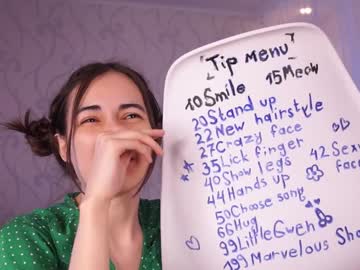 "Tip Menu"
10 Smile 15 Meow
20 Stand up
22 New hairstyle
27 Crazy face
35 Lick finger
40 Show legs
42 Sexy face
44 Hands up
50 Choose song
66 Hug
99 Little Gweh
199 Marvelous Sho